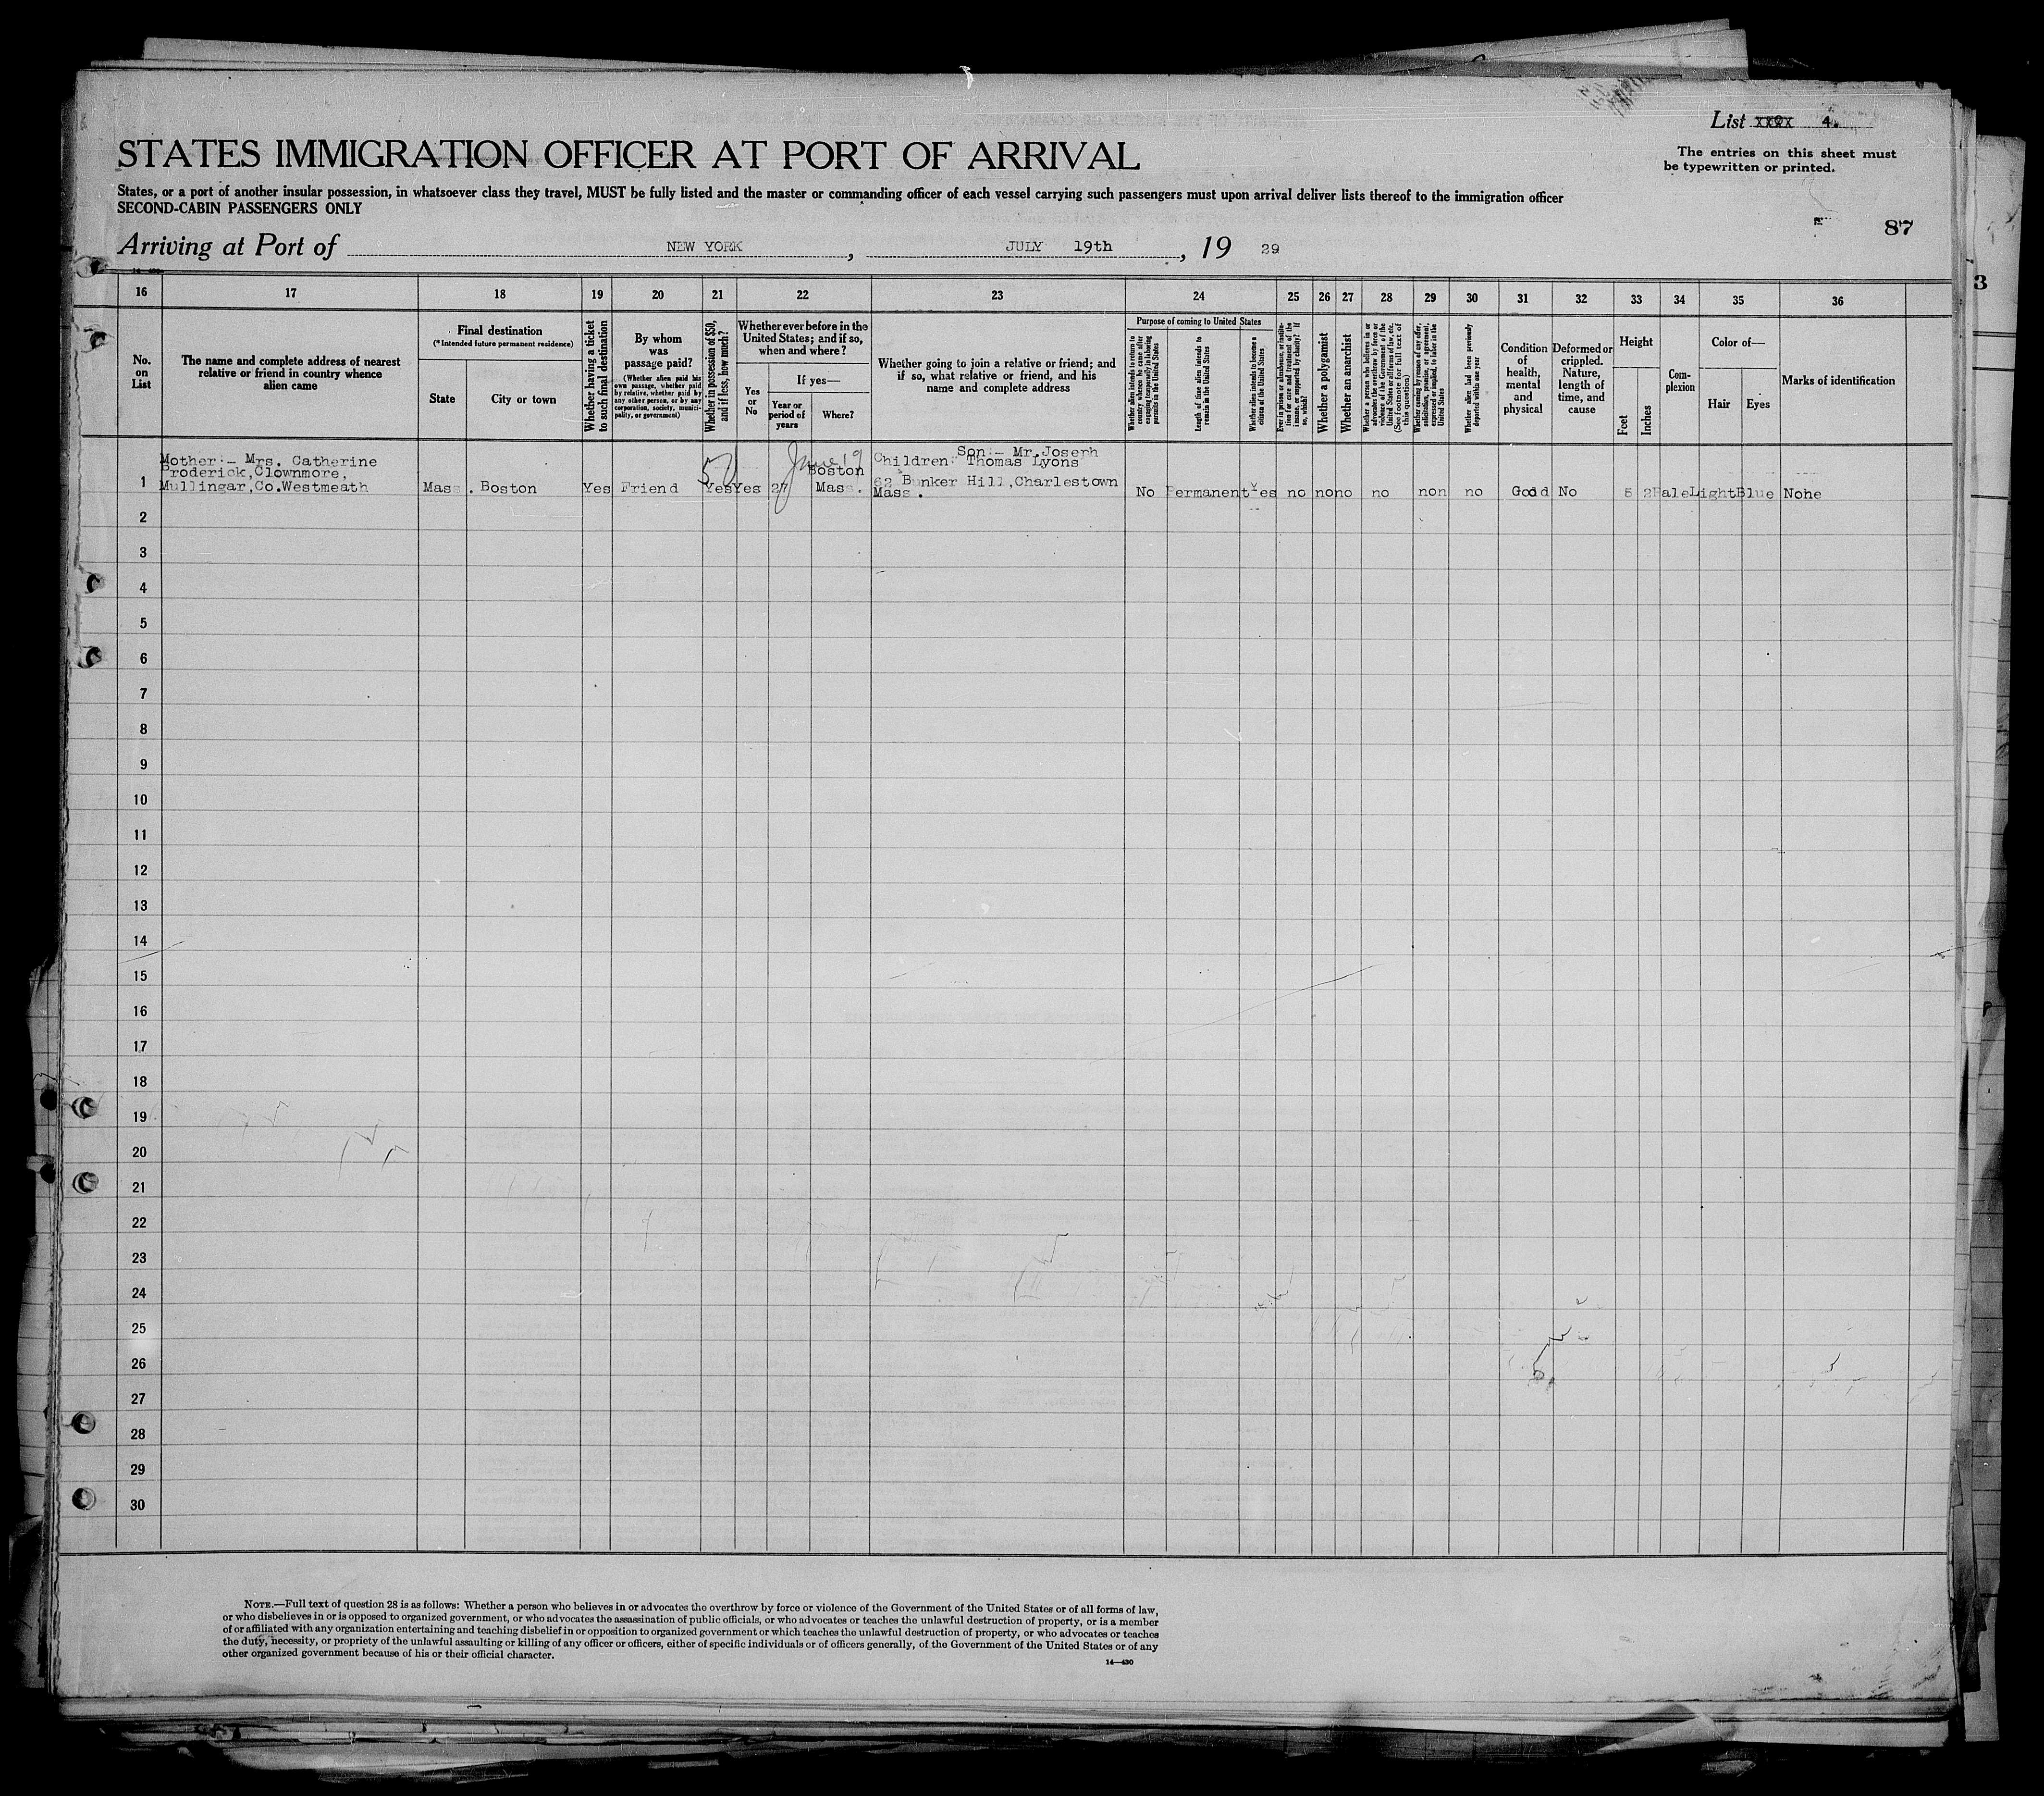 List XXXX 4.
STATES IMMIGRATION OFFICER AT PORT OF ARRIVAL
The entries on this sheet must
be typewritten or printed.
States, or a port of another insular possession, in whatsoever class they travel, MUST be fully listed and the master or commanding officer of each vessel carrying such passengers must upon arrival deliver lists thereof to the immigration officer
SECOND-CABIN PASSENGERS ONLY
87
Arriving at Port of NEW YORK, JULY 19th, 19 29
3
16 17 18 19 20 21 22 23 24 25 26 27 28 29 30 31 32 33 34 35 36
No.
on
List
The name and complete address of nearest
relative or friend in country whence
alien came
Final destination
(*Intended future permanent residence)
State
City or town
Whether having a ticket
to such final destination
By whom
was
passage paid?
(Whether alien paid his
own passage, whether paid
by relative, whether paid by
any other person, or by any
corporation, society, munici-
pality, or government)
Whether in possession of $50,
and if less, how much?
Whether ever before in the
United States; and if so,
when and where?
Yes
or
No
If yes—
Year or
period of
years
Where?
Whether going to join a relative or friend; and
if so, what relative or friend, and his
name and complete address
Purpose of coming to United States
Whether alien intends to return to
country whence he came after
engaging temporarily in laboring
pursuits in the United States
Length of time alien intends to
remain in the United States
Whether alien intends to become a
citizen of the United States
Ever in prison or almshouse, or institu-
tion for care and treatment of the
insane, or supported by charity? If
so, which?
Whether a polygamist
Whether an anarchist
Whether a person who believes in or
advocates the overthrow by force or
violence of the Government of the
United States or all forms of law, etc.
(See footnote for full text of
this question)
Whether coming by reason of any offer,
solicitation, promise, or agreement,
expressed or implied, to labor in the
United States
Whether alien had been previously
deported within one year
Condition
of
health,
mental
and
physical
Deformed or
crippled.
Nature,
length of
time, and
cause
Height
Feet
Inches
Com-
plexion
Color of—
Hair
Eyes
Marks of identification
Mother:- Mrs. Catherine
Broderick, Clownmore,
Mullingar, Co. Westmeath
1 Mass. Boston Yes Friend 50 Yes Yes June 19 27 Boston Mass.
Son:- Mr. Joseph
Children: Thomas Lyons
62 Bunker Hill, Charlestown
Mass.
No Permanent Yes no no no no non no Good No 5 2 Pale Light Blue Nohe
2
3
4
5
6
7
8
9
10
11
12
13
14
15
16
17
18
19
20
21
22
23
24
25
26
27
28
29
30
NOTE.—Full text of question 28 is as follows: Whether a person who believes in or advocates the overthrow by force or violence of the Government of the United States or of all forms of law,
or who disbelieves in or is opposed to organized government, or who advocates the assassination of public officials, or who advocates or teaches the unlawful destruction of property, or is a member
of or affiliated with any organization entertaining and teaching disbelief in or opposition to organized government or which teaches the unlawful destruction of property, or who advocates or teaches
the duty, necessity, or propriety of the unlawful assaulting or killing of any officer or officers, either of specific individuals or of officers generally, of the Government of the United States or of any
other organized government because of his or their official character.
14—430